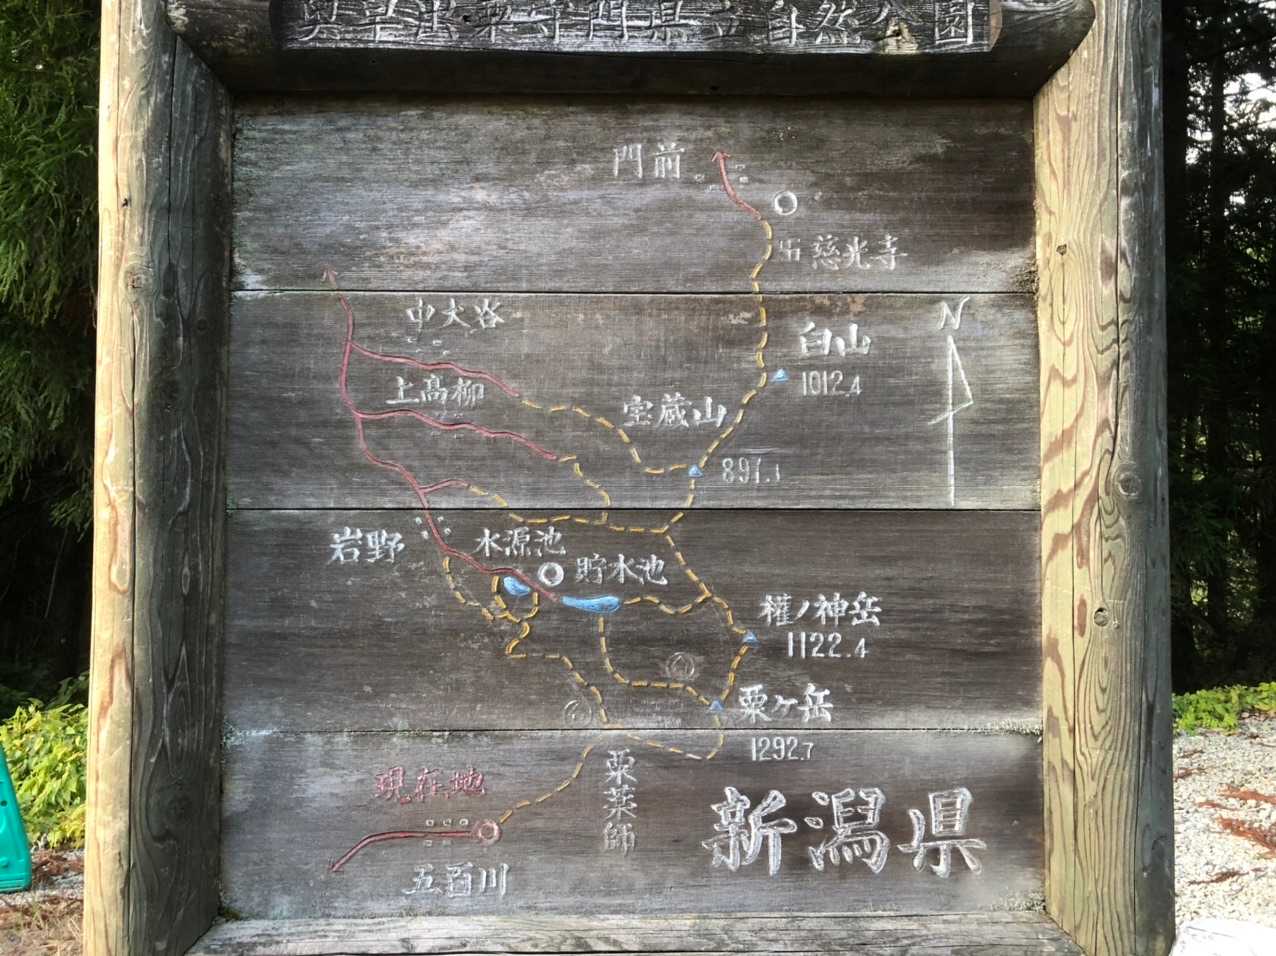 門前
卍慈光寺
中大谷
白山
1012.4
N
上高柳
室蔵山
897.1
岩野
水源池
貯水池
權ノ神岳
1122.4
粟ヶ岳
1292.7
粟薬師
現在地
五百川
新潟県